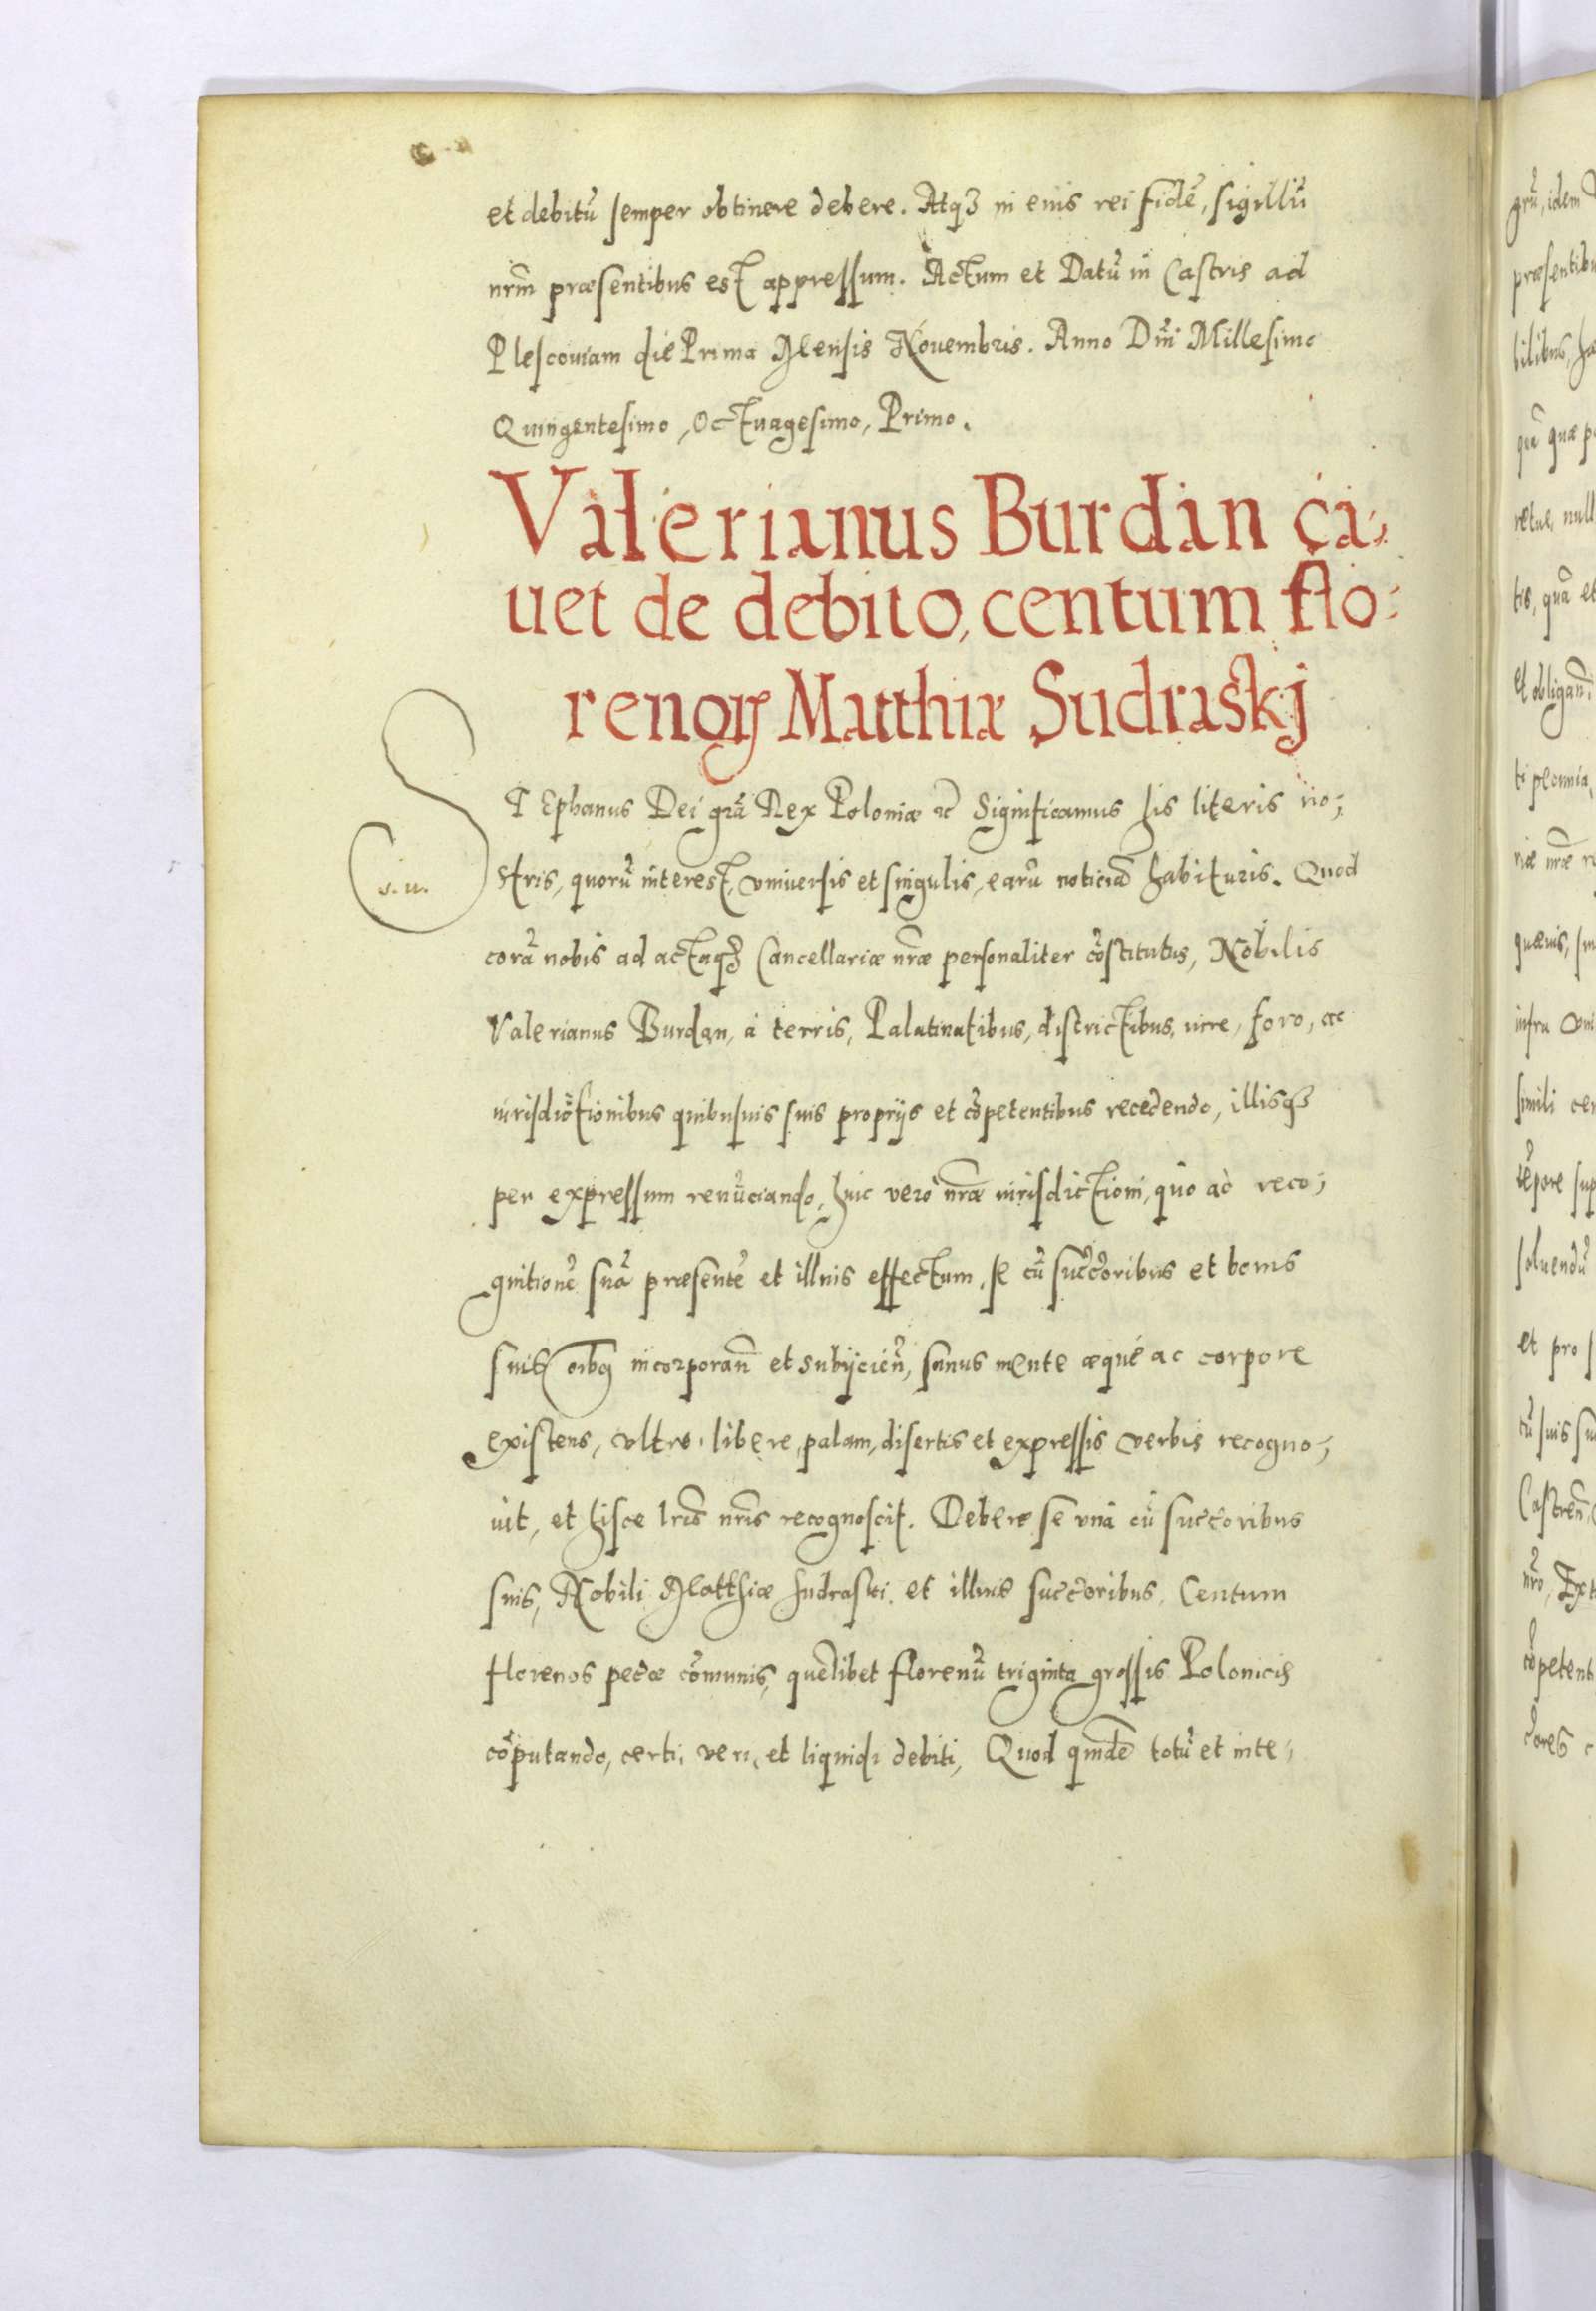 et debitũ semper obtinere debere. Atqꝫ in eius rei fidẽ, sigillũ
nr̃m præsentibus est appressum. Actum et Datũ in Castris ad
Plescouiam die Prima Mensis Nouembris. Anno Dñi Millesimo
Quingentesimo, Octuagesimo, Primo.
Valerianus Burdan ca⸗
uet de debito, centum flo⸗
renoꝝ Matthiæ Sudraskj
STEphanus Dei gr̃a Rex Poloniæ ꝛc̃ Significamus his literis no⸗
stris, quorũ interest, vniuersis et singulis, earũ noticiã habituris. Quod
s. u.
corã nobis ad actaqꝫ Cancellariæ nr̃æ personaliter cõstitutus, Nobilis
Valerianus Burdan, à terris, Palatinatibus, districtibus, iure, foro, ac
iurisdictionibus quibusuis suis proprijs et cõpetentibus recedendo, illisqꝫ
per expressum renũciando, huic verò nr̃æ iurisdictioni, quo ad reco⸗
gnitionẽ suã præsentẽ et illius effectum, se cũ succ̃oribus et bonis
suis oĩbꝫ incorporan̄ et subijcien̄, sanus mente æquè ac corpore
existens, vltro, libere, palam, disertis et expressis verbis recogno⸗
uit, et hisce lr̃is nr̃is recognoscit. Debere se vnà cũ succ̃oribus
suis, Nobili Matthiæ Sudraski, et illius succ̃oribus, Centum
florenos pec̃æ cõmunis, quẽlibet florenũ triginta grossis Polonicis
cõputando, certi, veri, et liquidi debiti, Quod quidẽ totũ et inte⸗